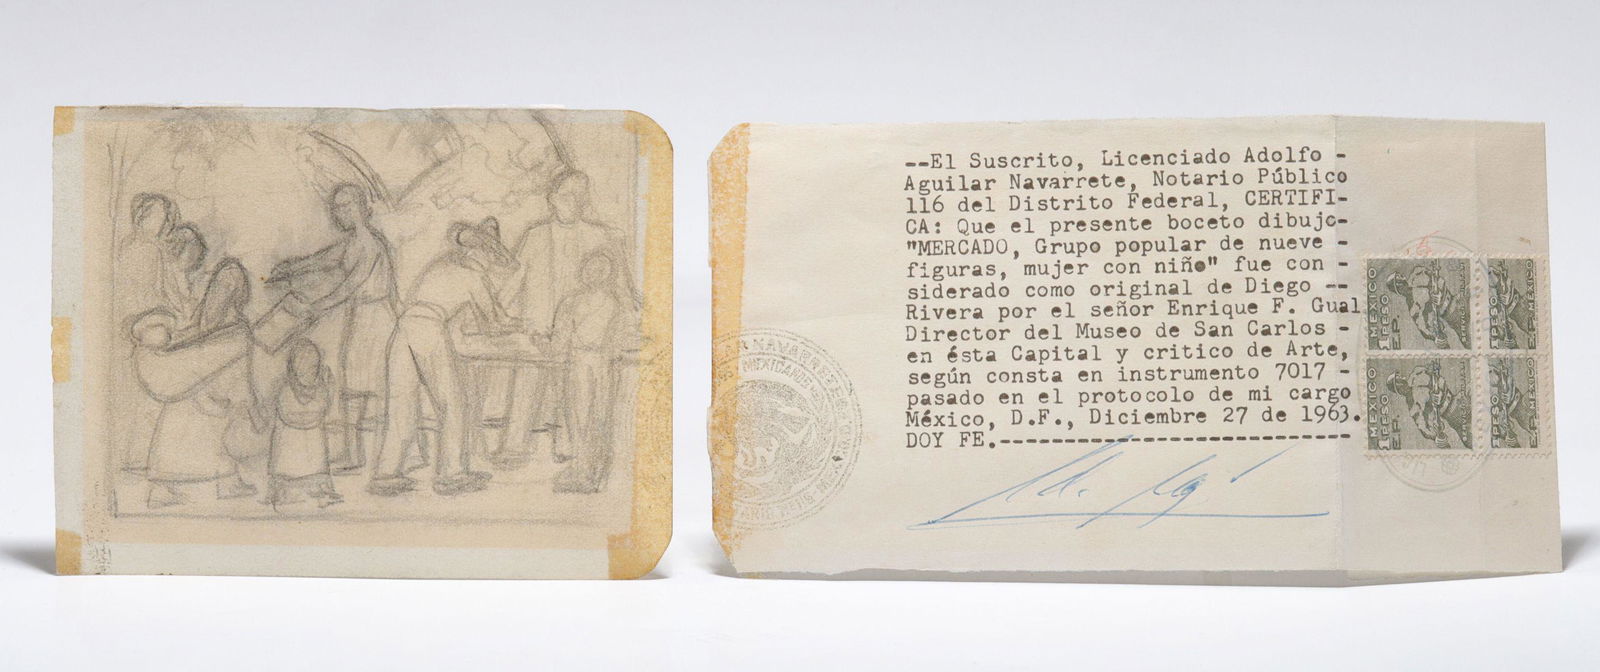 --El Suscrito, Licenciado Adolfo -
Aguilar Navarrete, Notario Público
116 del Distrito Federal, CERTIFI-
CA: Que el presente boceto dibujo-
"MERCADO, Grupo popular de nueve -
figuras, mujer con niño" fue con -
siderado como original de Diego --
Rivera por el señor Enrique F. Gual
Director del Museo de San Carlos -
en ésta Capital y critico de Arte,
según consta en instrumento 7017 -
pasado en el protocolo de mi cargo
México, D.F., Diciembre 27 de 1963.
DOY FE.----------------------------
NAVARRETE
MEXICANOS
MEXICO
1 PESO
1 PESO
MEXICO
MEXICO
1 PESO
1 PESO
MEXICO